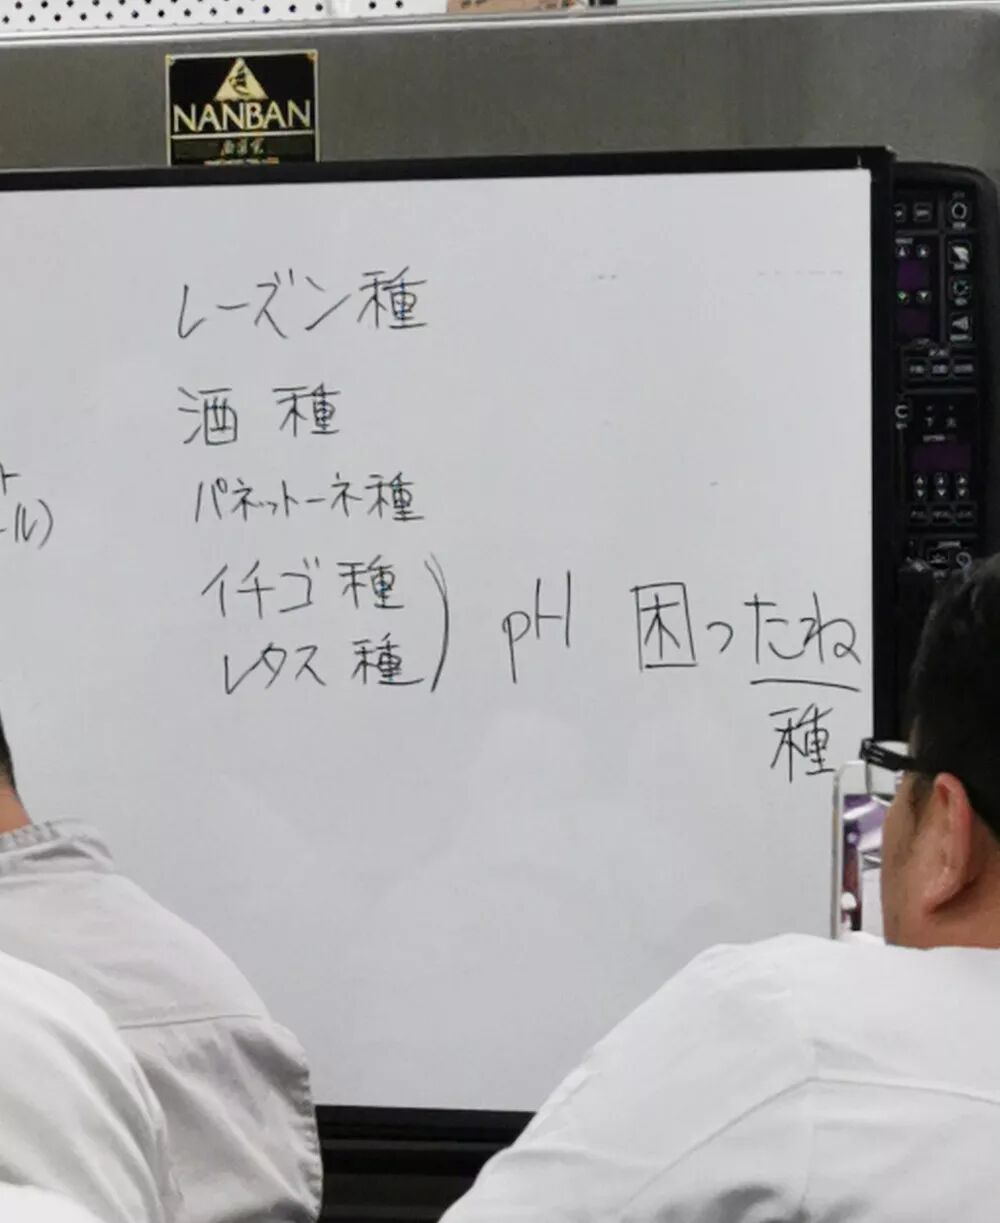 NANBAN
レーズン種
酒種
パネットーネ種
イチゴ種
レタス種) pH 困ったね
種
ト
ール)